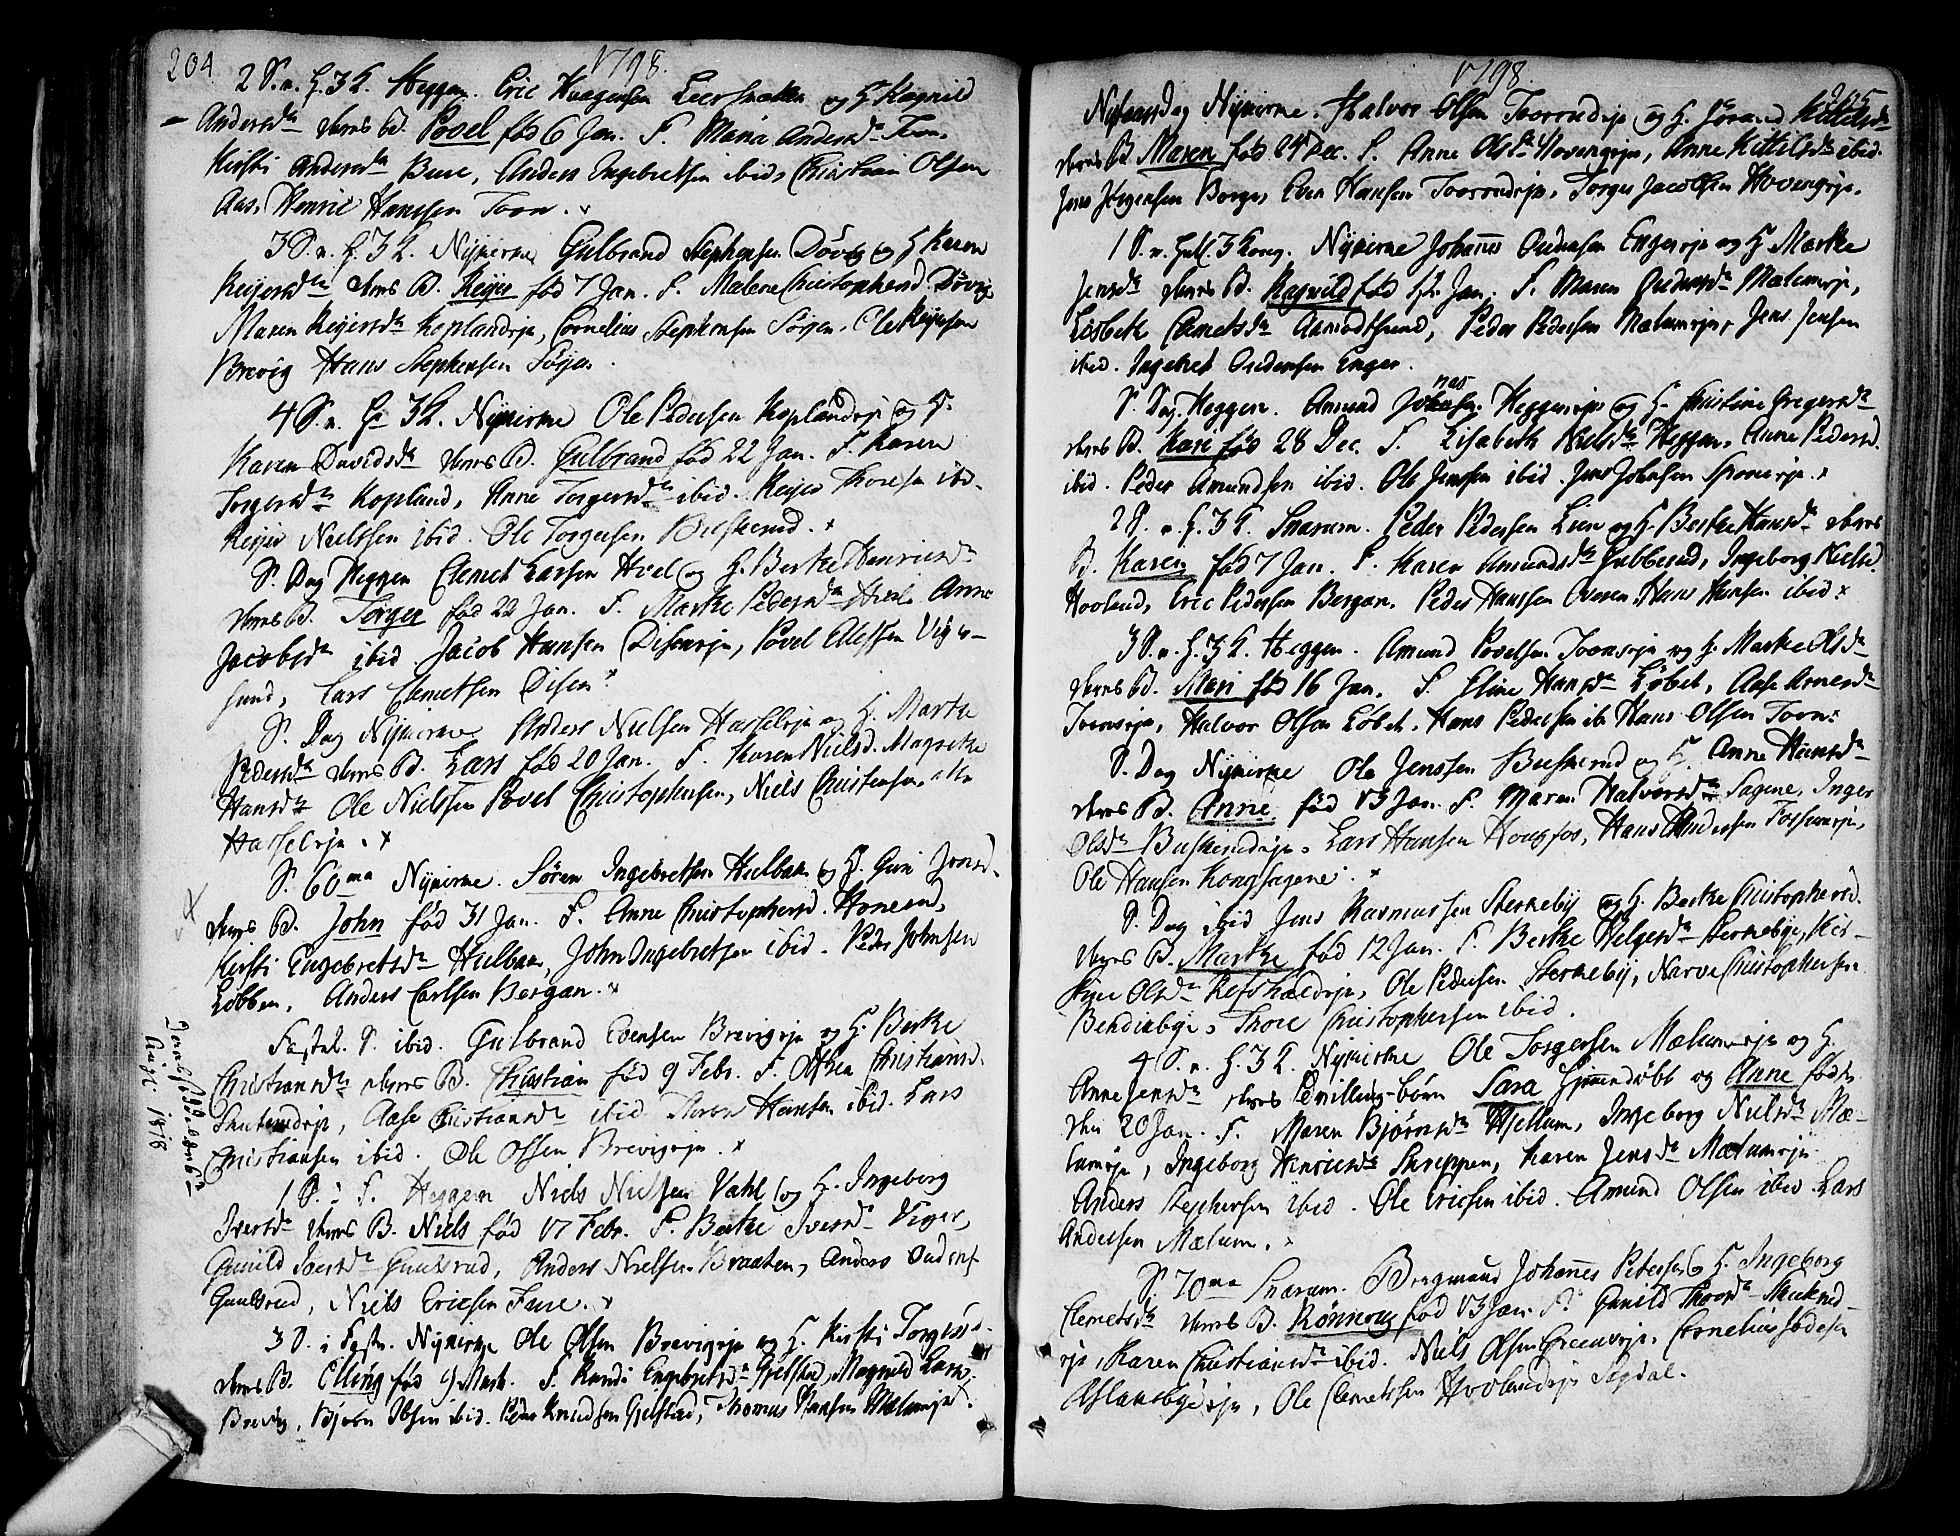 204
1798.
2 S. e. H. 3 K. Heggen. Eric Haagensen Leersnatten og H. Ragnild
Andersdr deres B. Povel fød 6 Jan. F. Maria Andersdr Torn.
Kirsti Andersdr Bure, Anders Ingebretsen ibid, Christian Olsen
Aas. Henric Hanssen Torn.
3 S. e. H. 3 K. Nykirke Gulbrand Stephensen Døvig og H. Karen
Reiersdr deres B. Reyer fød 7 Jan. F. Malene Christophersd. Døvig,
Maren Reyersdr Koplandeje, Cornelius Stephensen Søjen. Ole Reyersen
Brevig Hans Stephensen Søjen.
4 S. e. H. 3 K. Nykirke Ole Pedersen Koplandeje og H.
Karen Davidsdr deres B. Gulbrand fød 22 Jan. F. Karen
Torgersdr Kopland, Anne Torgersdr ibid. Reyer Thoresen ibd.
Reyer Nielssen ibid. Ole Torgersen Buskerud.
S. Dag Heggen Clemet Larsen Hvel og H. Berthe Henricsdr
deres B. Torger fød 22 Jan. F. Marthe Pedersdr Hvel. Anne
Jacobsdr ibid Jacob Hansen Diseneje, Povel Ellefsen Viger-
sund, Lars Clemetsen Disen.
S. Dag Nykirke Anders Nielsen Hasseleje og H. Marthe
Pedersdr deres B. Lars fød 20 Jan. F. Karen Nielsd. Magrethe
Hansdr Ole Nielssen Povel Christophersen, Niels Christensen alle
Hasseleje.
S. 60ma Nykirke. Søren Ingebretsen Hulbak og H. Guri Jonsd.
deres B. John fød 31 Jan. F. Anne Christophersd. Honerud,
Kirsti Engebretsdr Hulbak, John Ingebretsen ibid. Peder Johnsen
Løbben. Anders Carlsen Bergan.
Fastel. S. ibid. Gulbrand Evensen Brevigeje og H. Berthe
Christiansdr deres B. Christian fød 9 Febr. F. Christiansd.
Aase Christiansdr ibid Hansen ibid. Lars
Christiansen ibid. Ole Olssen Brevigeje.
1 S. i F. Heggen Niels Nielssen Vahl og H. Ingeborg
Iversdr deres B. Niels fød 17 Febr. F. Berthe Iversdr Viger,
Gunild Iversdr Gunlsrud, Anders Nielsen Braaten, Anders
Gunlsrud, Niels Ericsen Fure.
3 S. i Fast. Nykirke Ole Olsen Brevigeje og H. Kirsti Torgersd.
deres B. Elling fød 9 Mart. F. Randi Engebretsdr Gjelstad, Magnild Larsd.
Brevig, Bjørn Ibsen ibid. Peder Knudsen Gjelstad, Thomas Hansen Mælumeje.
Augt. 1818
1798.
205
Nytaarsdag Nykirke. Halvor Olsen Toverudeje og H. Jørand Kittelsdr
deres B. Maren fød 24 Dec. F. Anne Olsdr Hovengeje, Anne Kittilsdr ibid.
Jens Jørgensen Borge, Even Hansen Toverudeje. Torger Jacobsen Hovengeje.
1 S. e. Hell. 3 Kong. Nykirke Johannes Gudensen Engereje og H. Marthe
Jensdr deres B. Ragnild fød 4 Jan. F. Maren Gudensdr Mælumeje,
Lisbeth Clemetsdr Aamodtsund, Peder Pedersen Mælumeje, Jens Jensen
ibid. Ingebret Gudensen Enger.
S. Dag. Heggen. Amund Jonassen Heggeneje og H. Christine Gregersdr
deres B. Kari fød 28 Dec. F. Lisabeth Nielsdr Heggen, Anne Pedersd.
ibid. Peder Amundsen ibid. Ole Jenssen ibid. Jens Johnsen Sponeeje.
2 S. e. H. 3 K. Snarum. Peder Pedersen Lien og H. Berthe Hansdr deres
B. Karen fød 7 Jan. F. Karen Amundsdr Gubberud, Ingeborg Nielsd.
Hovland, Eric Pedersen Bergan. Peder Hanssen Overn. Hans Hansen ibid.
3 S. e. H. 3 K. Heggen. Amund Povelsen Torneeje og H. Marthe Olsdr
deres B. Mari fød 16 Jan. F. Eline Hansdr Løbet, Aase Arnesdr
Torneeje, Halvor Olsen Løbet, Hans Pedersen ib. Hans Olsen Torn.
S. Dag Nykirke Ole Jenssen Buskerud og H. Anne Hansdr
deres B. Anne fød 13 Jan. F. Maren Halvorsdr Sagene, Inger
Olsdr Buskerudeje, Lars Hansen Hougfos, Hans Andersen Fossumeje,
Ole Hansen Kongssagene.
S. Dag ibid Jens Rasmussen Sterkeby og H. Berthe Christophersd.
deres B. Marthe fød 12 Jan. F. Berthe Helgesdr Sterkebye, Kir-
stine Olsdr Refshaldeje, Ole Pedersen Sterkeby, Narve Christophersen
Bendikbye, Thore Christophersen ibid.
4 S. e. H. 3 K. Nykirke Ole Torgersen Mælumeje og H.
Anne Jensdr deres Tvilling-Børn Sara Hjemmedøbt og Anne fødde
den 20 Jan. F. Maren Bjørnsdr Hellum, Ingeborg Nielsdr Mæ-
lumeje, Ingeborg Henricsdr Skreppen, Karen Jensdr Mælumeje
Anders Stephensen ibid. Ole Ericsen ibid. Amund Olsen ibid. Lars
Andersen Mælum.
S. 70ma Snarum. Bergmand Johannes Petersen og H. Ingeborg
Clemetsdr deres B. Rønnoug fød 13 Jan. F. Gunild Thorsdr
eje, Karen Christiansdr ibid. Niels Olsen Greeneeje. Cornelius
Aslaksbyeeje, Ole Clemetssen Hovlandeje Sigdal.